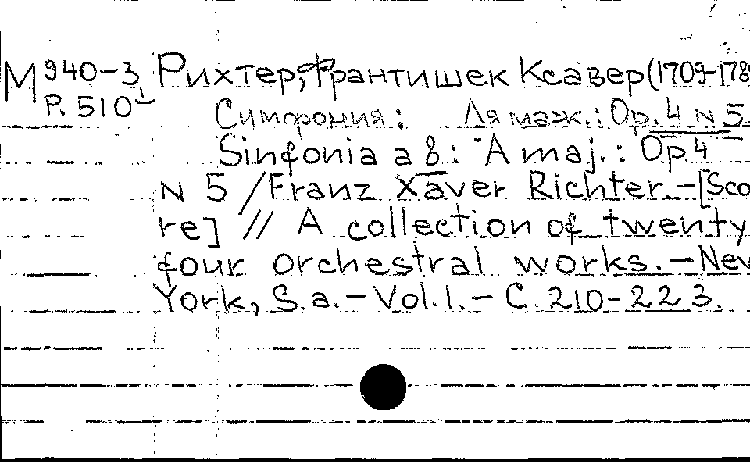 М 940-3 Рихтер, Франтишек Ксавер (1709-178
Р. 510
Симфония: Ля маж.: Op. 4 N 5.
Sinfonia a 8: A maj.: Op 4
N 5 / Franz Xaver Richter.-[Sco
re] // A collection of twenty
four orchestral works.-New
York, S.a.-Vol.1.-C.210-223.